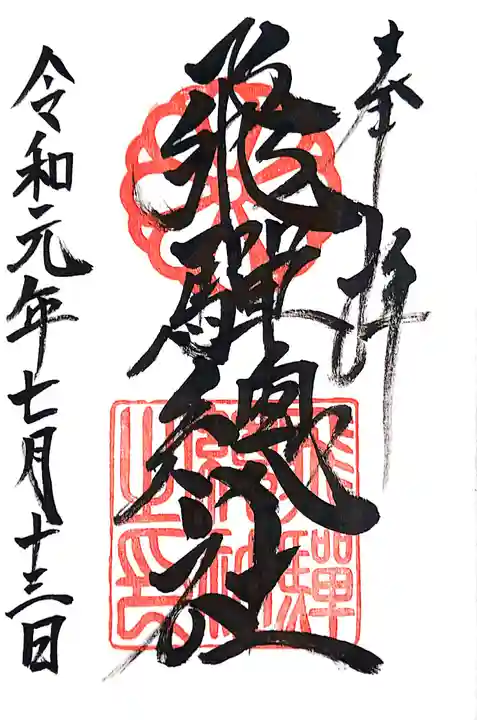 奉拝
飛騨總社
飛騨總社之印
令和元年七月十三日